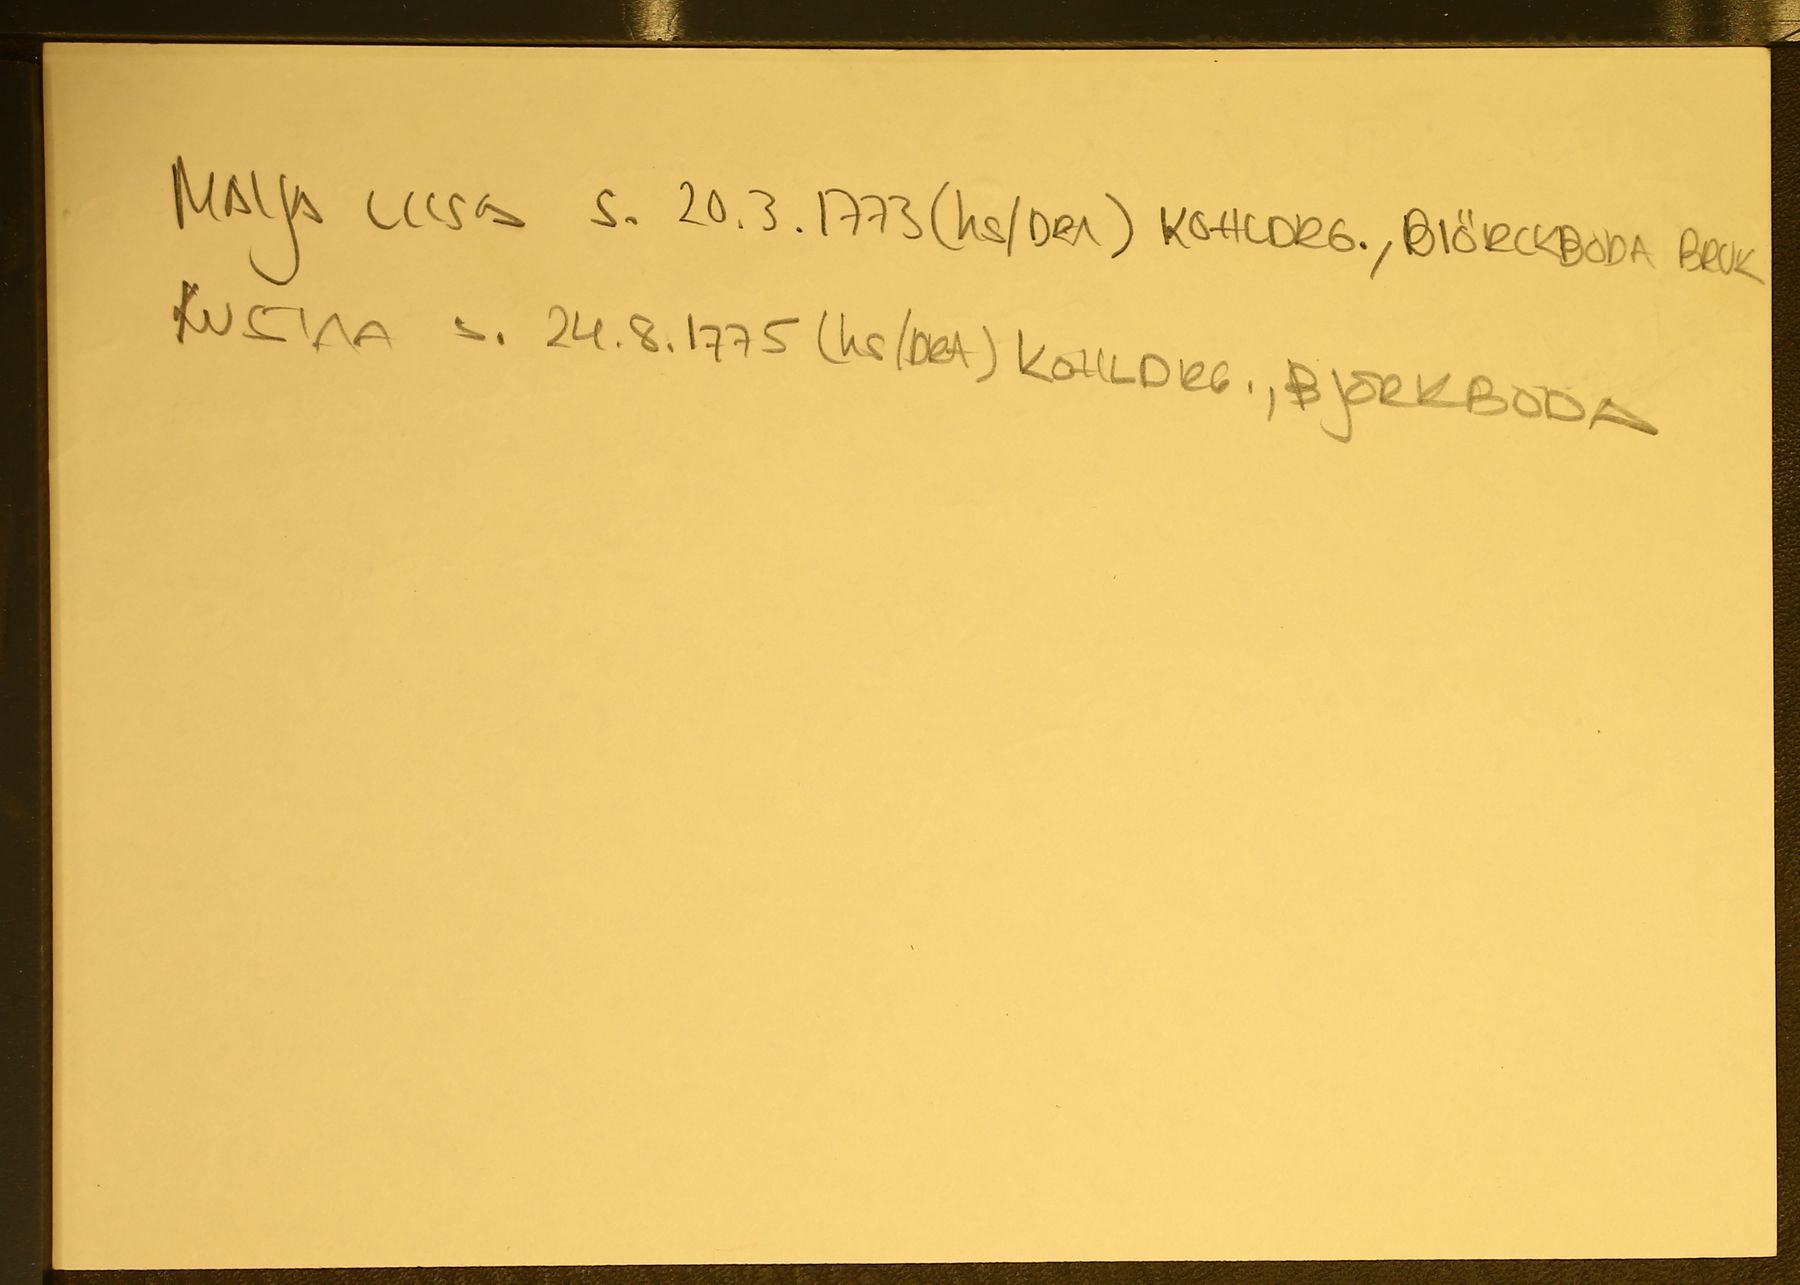 MAIJA LIISA s. 20.3.1773 (hs/DRA) KOHLDRG., BIÖRCKBODA BRUK
KUSTAA s. 24.8.1775 (hs/DRA) KOHLDRG., BJÖRKBODA